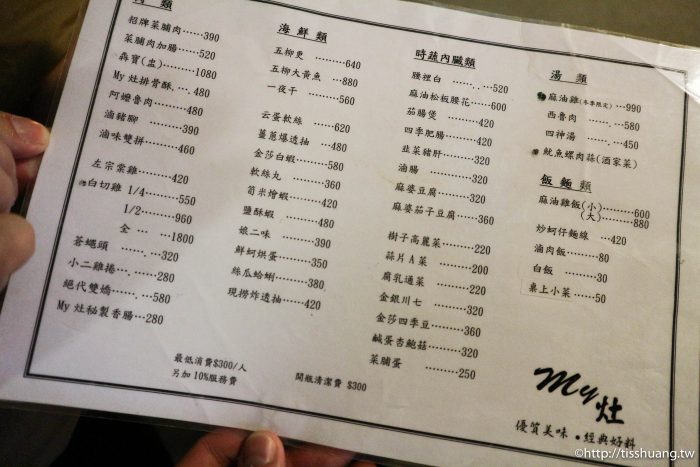 肉 類
招牌菜脯肉……390
菜脯肉加腸……520
犇寶(盅)……1080
My灶排骨酥…480
阿嬤魯肉……480
滷豬腳……390
滷味雙拼……460
左宗棠雞……420
白切雞 1/4……550
1/2……960
全 …1800
蒼蠅頭……320
小二雞捲……280
絕代雙嬌……580
My 灶秘製香腸…280
海 鮮 類
五柳更……640
五柳大黃魚……880
一夜干……560
云蛋軟絲……620
薑蔥爆透抽……480
金莎白蝦……580
軟絲丸……360
筍米燴蝦……420
鹽酥蝦……480
娘二味……390
鮮蚵烘蛋……350
絲瓜蛤蜊……380
現撈炸透抽……420
時蔬內臟類
腰裡白……520
麻油松板腰花……600
茄腸煲……420
四季肥腸……420
韭菜豬肝……320
滷腸……320
麻婆豆腐……320
麻婆茄子豆腐……360
樹子高麗菜……220
蒜片A菜……200
腐乳通菜……220
金銀川七……320
金莎四季豆……360
鹹蛋杏鮑菇……320
菜脯蛋……250
湯 類
麻油雞(冬季限定)…990
西魯肉……580
四神湯……450
魷魚螺肉蒜(酒家菜)
飯 麵 類
麻油雞飯(小)……600
(大)……880
炒蚵仔麵線…420
滷肉飯……80
白飯……30
桌上小菜……50
最低消費$300/人
另加 10%服務費
開瓶清潔費 $300
My灶
優質美味•經典好料
©http://tisshuang.tw